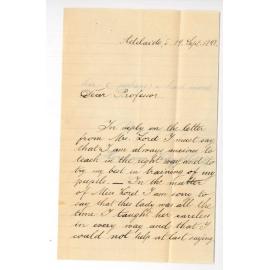 Adelaide, 19. Sept. 189
Dear Professor
In reply on the letter
from Mrs. Lord I must say
that I am always anxious to
teach in the right way and to
try my best in training of my
pupils. — In the matter
of Miss Lord I am sorry to
say that this lady was all the
time I taught her careless
in every way and that I
could not help at last saying